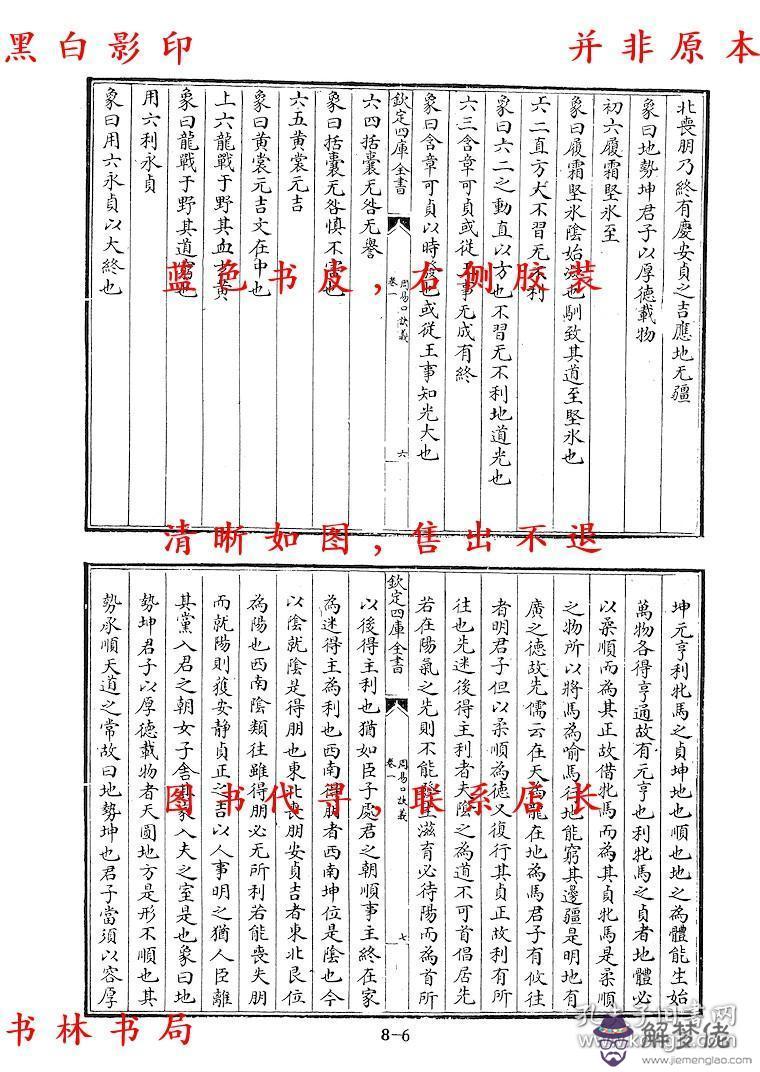 黑白影印
并非原本
北喪朋乃終有慶安貞之吉應地无疆
象曰地勢坤君子以厚德載物
初六履霜堅氷至
象曰履霜堅氷陰始也馴致其道至堅氷也
六二直方大不習无不利
象曰六二之動直以方也不習无不利地道光也
六三含章可貞或從事无成有終
象曰含章可貞以時也或從王事知光大也
欽定四庫全書
周易口訣義
卷一
六
六四括囊无咎无譽
象曰括囊无咎慎不也
六五黄裳元吉
象曰黄裳元吉文在中也
上六龍戰于野其血黄
象曰龍戰于野其道也
用六利永貞
象曰用六永貞以大終也
蓝色书皮,右侧胶装
清晰如图,售出不退
坤元亨利牝馬之貞坤地也順也地之為體能生始
萬物各得亨通故有元亨也利牝馬之貞者地體必
以柔順而為其正故借牝馬而為其貞牝馬是柔順
之物所以將馬為喻馬行地能窮其邊疆是明地有
廣之德故先儒云在天為龍在地為馬君子有攸往
者明君子但以柔順為德又復行其貞正故利有所
往也先迷後得主利者夫陰之為道不可首倡居先
若在陽氣之先則不能生滋育必待陽而為首所
欽定四庫全書
周易口訣義
卷一
七
以後得主利也猶如臣子處君之朝順事主終在家
為迷得主為利也西南得朋者西南坤位是陰也今
以陰就陰是得朋也東北喪朋安貞吉者東北艮位
為陽也西南陰類往雖得朋必无所利若能喪失朋
而就陽則獲安静貞正之吉以人事明之猶人臣離
其黨入君之朝女子舍其家入夫之室是也象曰地
勢坤君子以厚德載物者天圓地方是形不順也其
勢承順天道之常故曰地勢坤也君子當須以容厚
图书代寻,联系店长
书林书局
8-6
解梦佬
www.jiemenglao.com